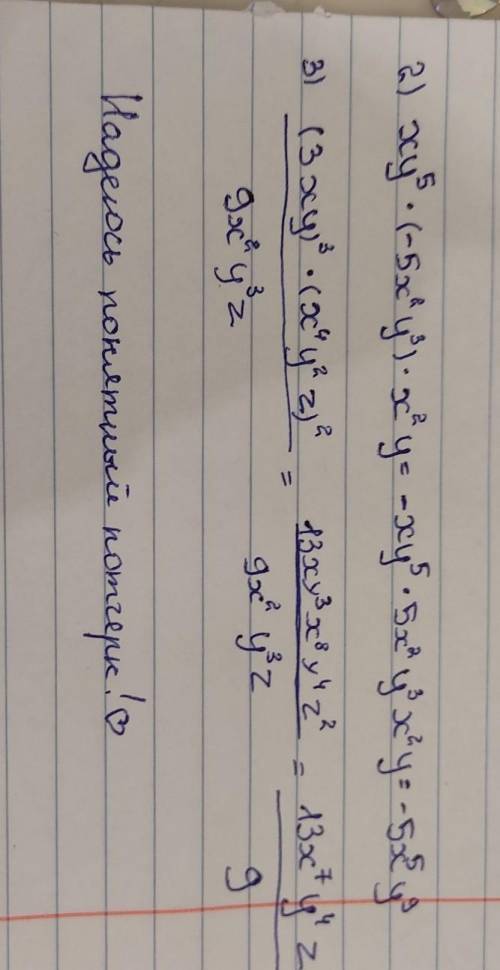 2) xy⁵ · (-5x²y³) · x²y = -xy⁵ · 5x²y³x²y = -5x⁵y⁹
3) (3xy)³ · (x⁴y²z)² / 9x²y³z = 13xy³x⁸y⁴z² / 9x²y³z = 13x⁷y⁴z / 9
Надеюсь понятный потчерк! ♡